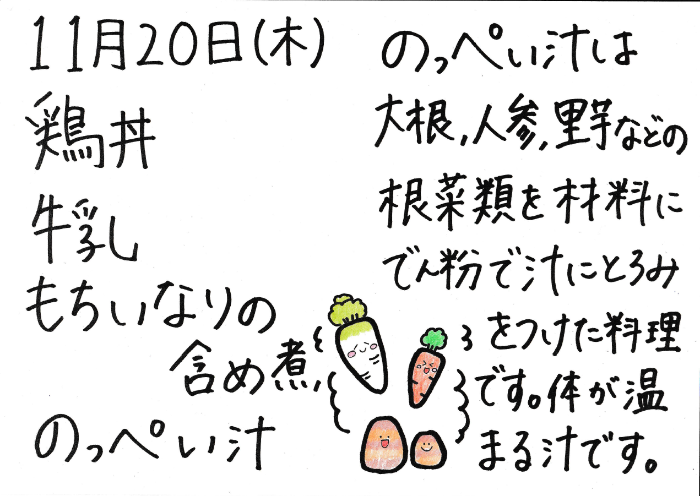 11月20日(木)
鶏丼
牛乳
もちいなりの
含め煮
のっぺい汁
のっぺい汁は
大根,人参,里芋などの
根菜類を材料に
でん粉で汁にとろみ
をつけた料理
です。体が温
まる汁です。